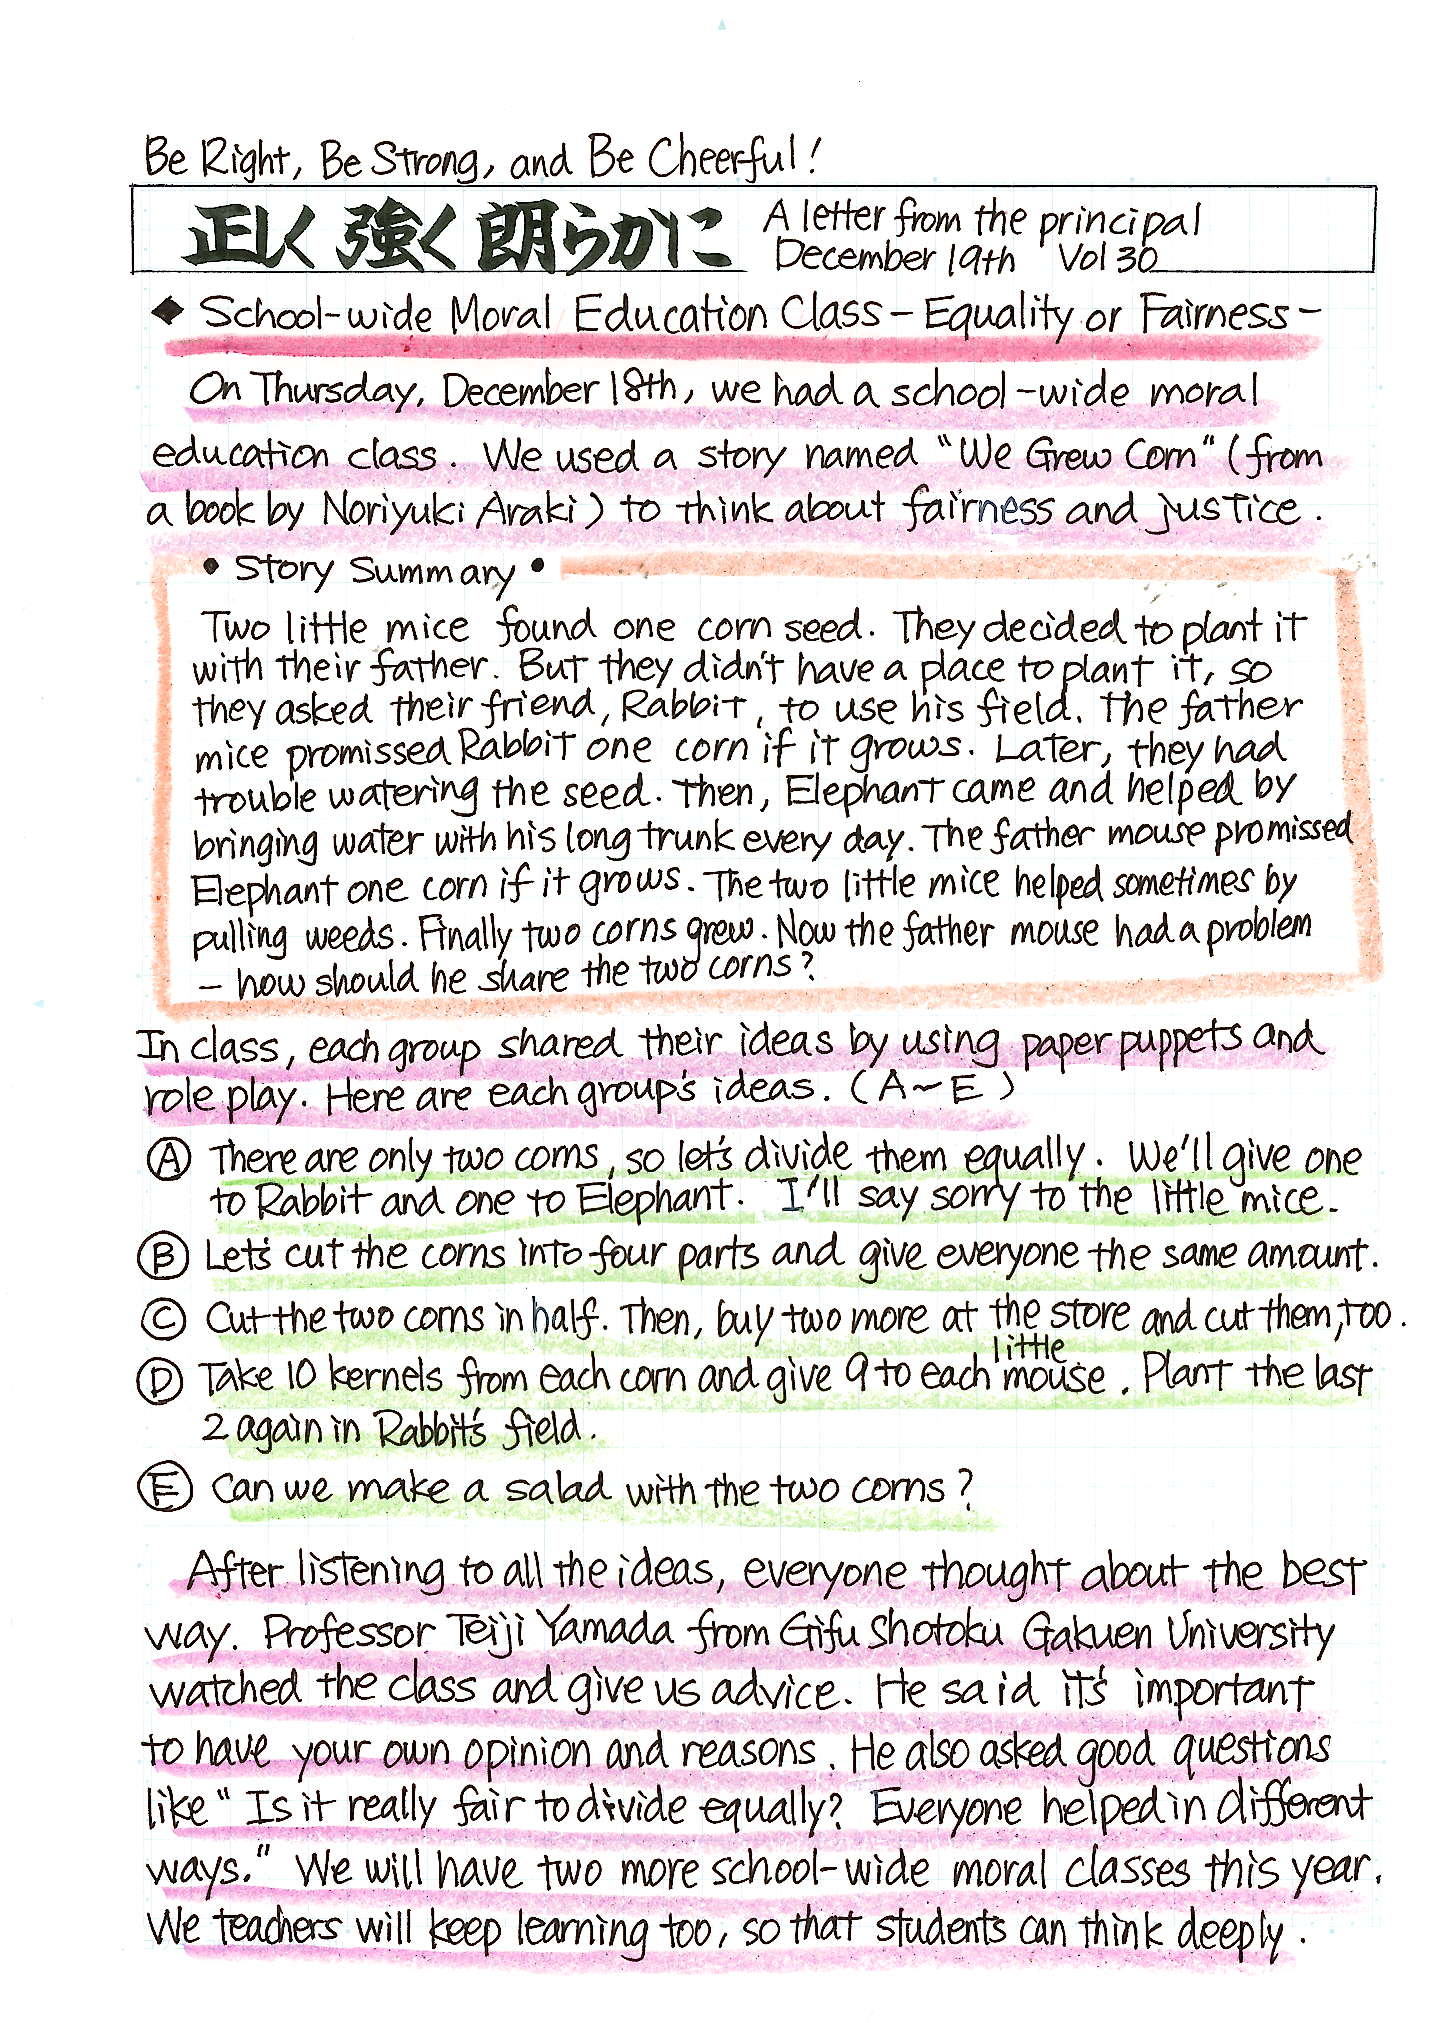 Be Right, Be Strong, and Be Cheerful!
正しく 強く 朗らかに
A letter from the principal
December 19th Vol 30
◆ School-wide Moral Education Class - Equality or Fairness -
On Thursday, December 18th, we had a school-wide moral
education class. We used a story named "We Grew Corn" (from
a book by Noriyuki Araki) to think about fairness and justice.
• Story Summary •
Two little mice found one corn seed. They decided to plant it
with their father. But they didn't have a place to plant it, so
they asked their friend, Rabbit, to use his field. The father
mice promissed Rabbit one corn if it grows. Later, they had
trouble watering the seed. Then, Elephant came and helped by
bringing water with his long trunk every day. The father mouse promissed
Elephant one corn if it grows. The two little mice helped sometimes by
pulling weeds. Finally two corns grew. Now the father mouse had a problem
– how should he share the two corns?
In class, each group shared their ideas by using paper puppets and
role play. Here are each group's ideas. (A~E)
Ⓐ There are only two corns, so let's divide them equally. We'll give one
to Rabbit and one to Elephant. I'll say sorry to the little mice.
Ⓑ Let's cut the corns into four parts and give everyone the same amount.
Ⓒ Cut the two corns in half. Then, buy two more at the store and cut them, too.
Ⓓ Take 10 kernels from each corn and give 9 to each little mouse. Plant the last
2 again in Rabbit's field.
Ⓔ Can we make a salad with the two corns?
After listening to all the ideas, everyone thought about the best
way. Professor Teiji Yamada from Gifu Shotoku Gakuen University
watched the class and give us advice. He said it's important
to have your own opinion and reasons. He also asked good questions
like "Is it really fair to divide equally? Everyone helped in different
ways." We will have two more school-wide moral classes this year.
We teachers will keep learning too, so that students can think deeply.